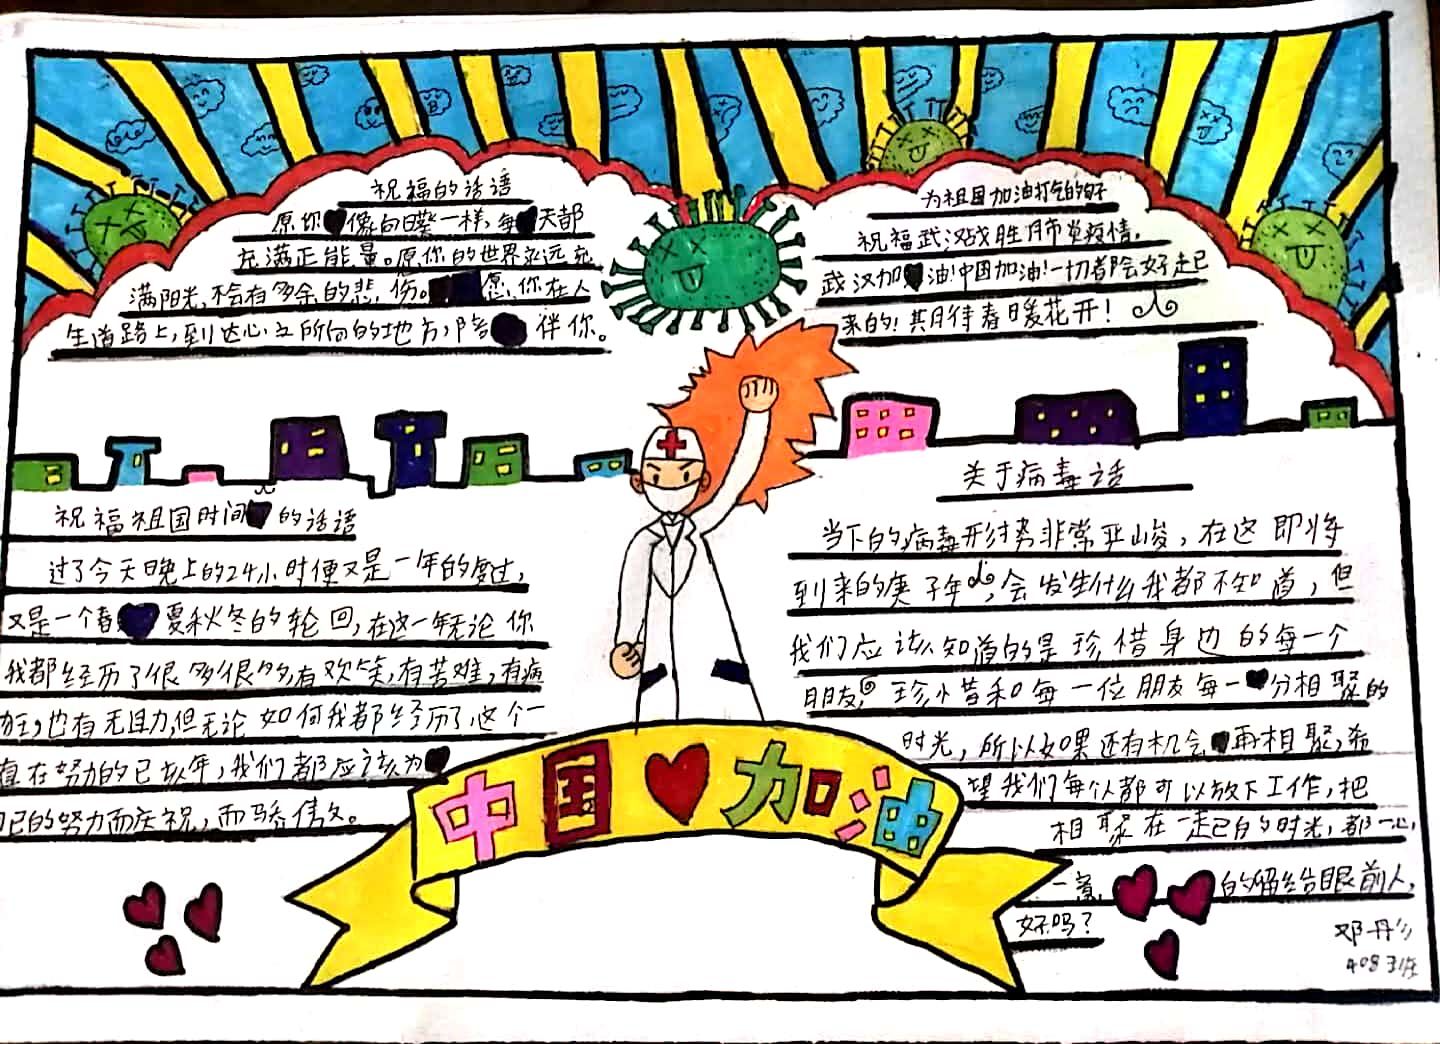 祝福的话语
愿你像向日葵一样,每天都
充满正能量。愿你的世界永远充
满阳光,不会有多余的悲伤。愿你在人
生道路上,到达心之所向的地方,陪伴你。
为祖国加油打气的好
祝福武汉战胜肺炎疫情,
武汉加油!中国加油!一切都会好起
来的!期待春暖花开!
祝福祖国时间的话语
过了今天晚上的24小时便又是一年的度过,
又是一个春夏秋冬的轮回,在这一年无论你
我都经历了很多很多,有欢笑,有苦难,有疯
狂,也有无助,但无论如何我都经历了这个一
直在努力的已故年,我们都应该为
自己的努力而庆祝,而骄傲。
关于病毒话
当下的病毒形势非常严峻,在这即将
到来的庚子年,会发生什么我都不知道,但
我们应该知道的是珍惜身边的每一个
朋友,珍惜和每一位朋友每一分相聚的
时光,所以如果还有机会再相聚,希
望我们每个人都可以放下工作,把
相聚在一起的时光,都一心
一意,的留给眼前人,
好吗?
中国加油
邓丹
408班